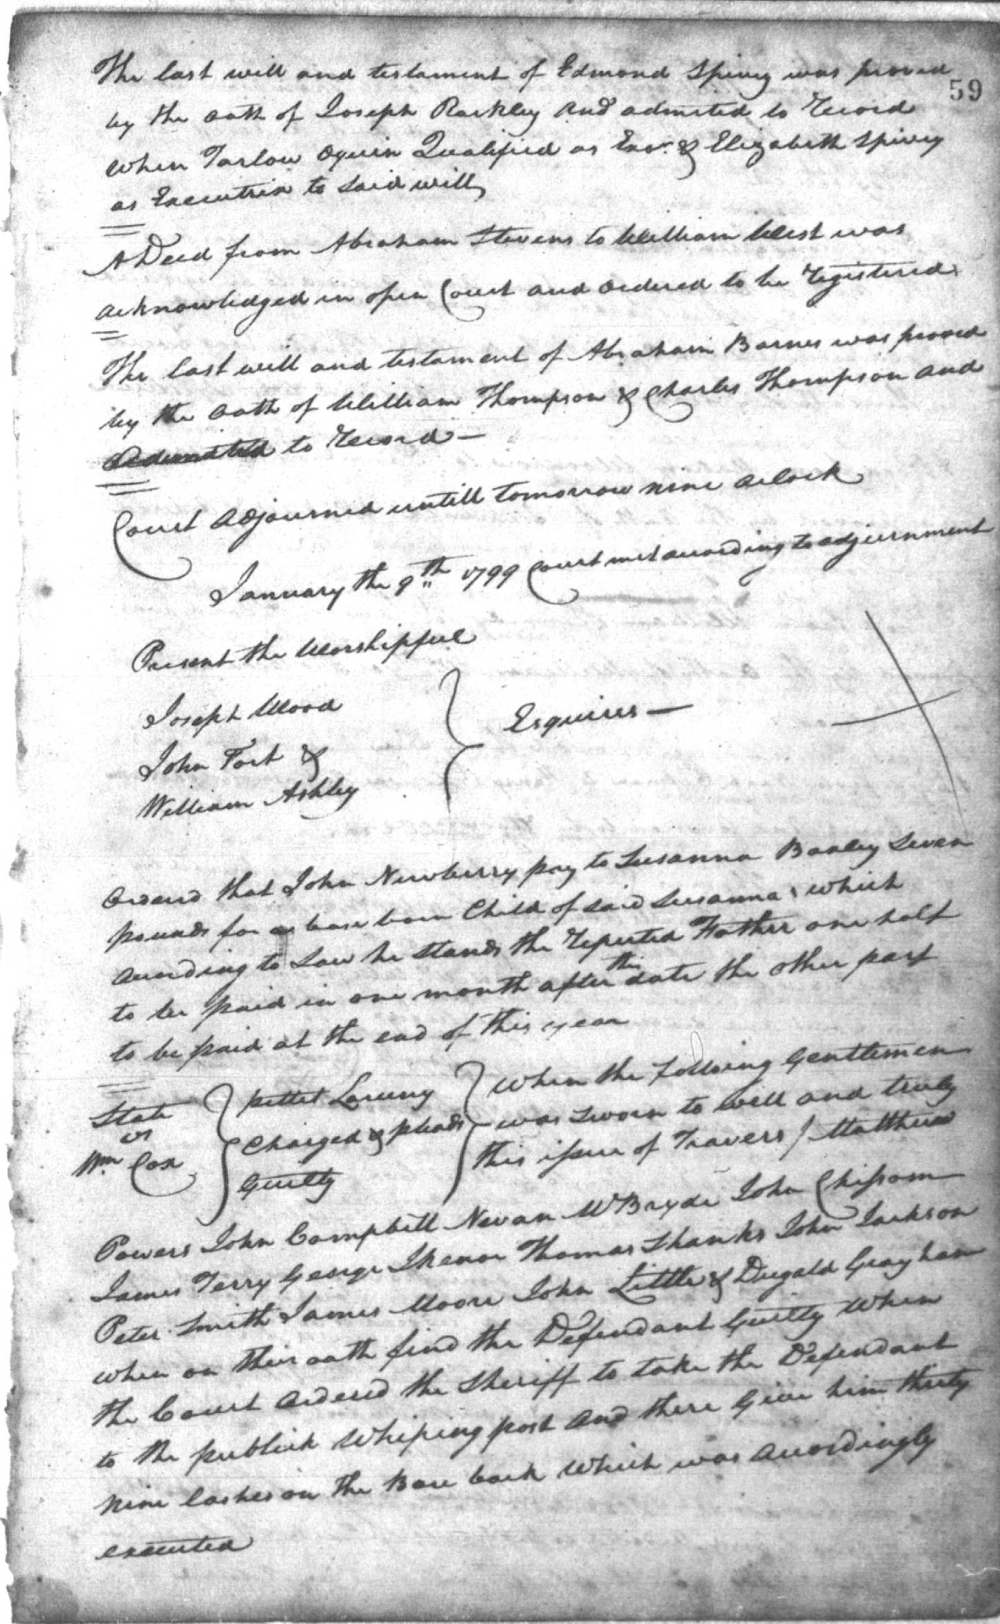 59
The last will and testament of Edmond Spivey was proved
by the oath of Joseph Rackley and admited to Record
when Tarlow Oquin Qualified as Exor. & Elizabeth Spivey
as Executrix to said will,
A Deed from Abraham Stevens to William West was
acknowledged in open Court and ordered to be Registered
The last will and testament of Abraham Barnes was proved
by the oath of William Thompson & Charles Thompson and
admitted to Record —
Court adjourned untill tomorrow nine oclock
January the 9th 1799 Court met according to adjournment
Present the Worshipfull
Joseph Wood
John Fort &
William Ashley
Esquires —
Ordered that John Newberry pay to Susanna Baxley Seven
pounds for a base born Child of said Susanna which
according to Law he stands the Reputed Father one half
to be paid in one month after this date the other part
to be paid at the end of this year
State
vs
Wm Cox
pettet Larceny
Charged & pleads
Guilty
When the following Gentlemen
was sworn to well and truly
this issue of Travers / Matthew
Powers John Campbell Nevan McBryde John Chissom
James Terry George Skenor Thomas Shanks John Jackson
Peter Smith James Moore John Little & Dugald Grayham
when on their oath find the Defendant Guilty when
the Court ordered the Sheriff to take the Defendant
to the publick whiping post and there give him thirty
nine lashes on the Bare back which was accordingly
executed